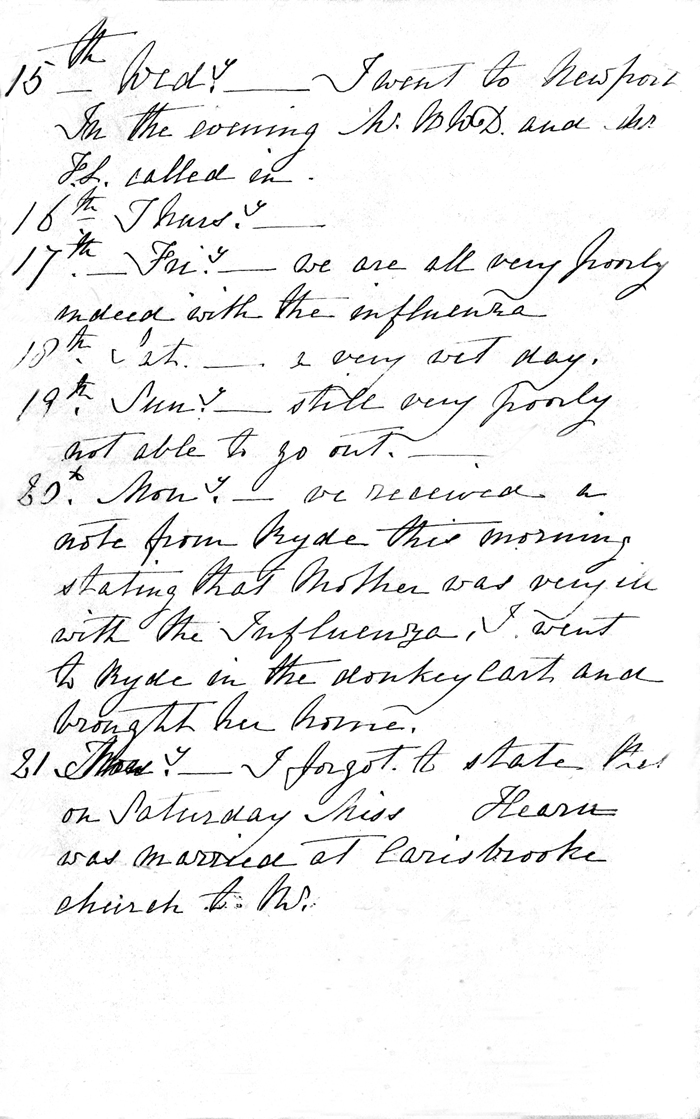 15th Wedy — I went to Newport
In the evening Mr. W.W.D. and Mr
F.L. called in.
16th Thursy —
17th — Friy — we are all very poorly
indeed with the influenza
18th. Sat. — a very wet day.
19th. Suny — still very poorly
not able to go out. —
20th. Mony. — we received a
note from Ryde this morning
stating that Mother was very ill
with the Influenza, I went
to Ryde in the donkey Cart and
brought her home.
21 y — I forgot to state that
on Saturday Miss Hearn
was married at Carisbrooke
church to Mr.